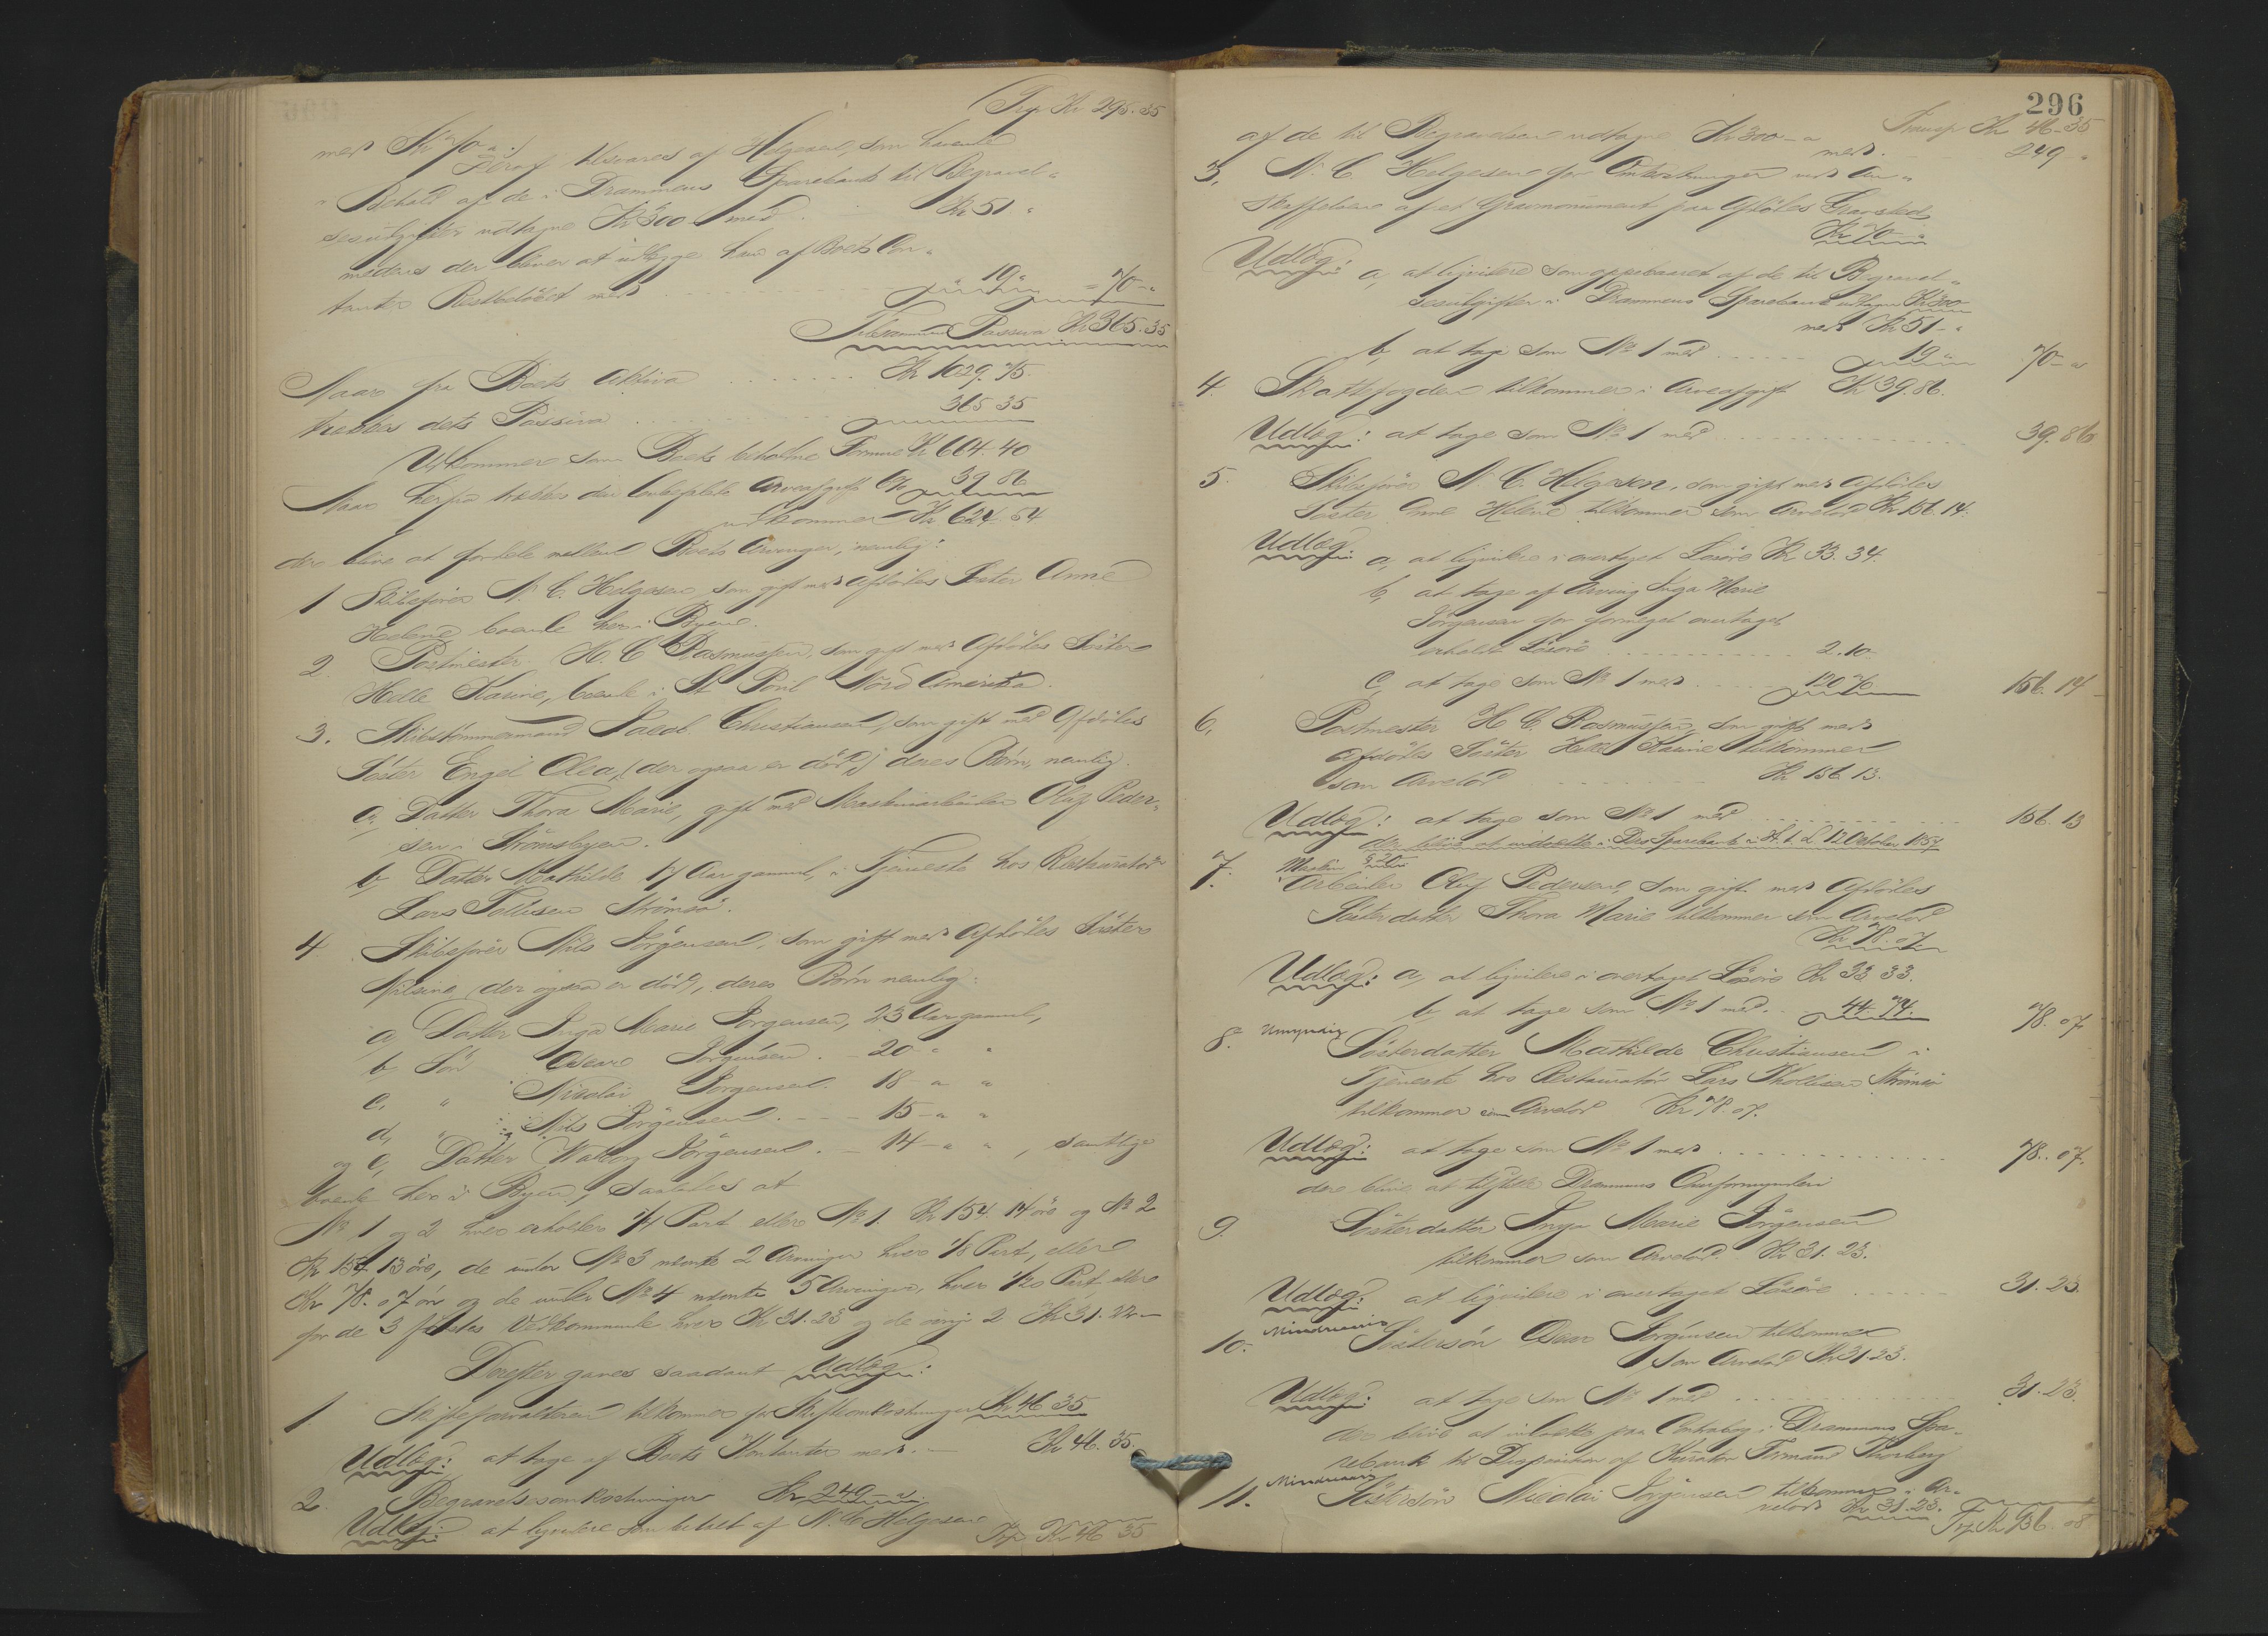 Trp Kr 295.35
med Kr 70 "
Heraf tilsvares af Helgesen, som havende
i Behold af de i Drammens Sparebank til Begravel-
sesutgifter udtagne Kr 300 - med Kr 51 "
medens der bliver at udlægge ham af Boets Con-
tanter Restbeløbet med " 19 " = 70 - "
Tilsammen Passiva Kr 365.35
Naar fra Boets Aktiva Kr 1029.75.
trækkes dets Passiva 365 35
Udkommer som Boets beholdne Formue Kr 664.40
Naar herfra trækkes den lovbefalede Arveafgift 6% 39 86
udkommer Kr 624.54
der blive at fordele mellem Boets Arvinger, nemlig:
1 Skibsfører N. C. Helgesen, som gift med Afdødes Søster Anne
Helene boende her i Byen.
2. Postmester H. C. Rasmussen, som gift med Afdødes Søster
Helle Karine, boende i St Poul Nord Amerika.
3. Skibstømmermand Jacob Christiansen, som gift med Afdødes
Søster Engel Olea, (der ogsaa er død,) deres Børn, nemlig.
a, Datter Thora Marie, gift med Maskinarbeider Oluf Peder-
sen i Strømsbyen.
b, Datter Mathilde 17 Aar gammel, i Tjeneste hos Restauratør
Lars Tollisen Strømsø.
4 Skibsfører Nils Jörgensen, som gift med Afdödes Söster
Nilsine, (der ogsaa er död), deres Börn nemlig:
a, Datter Inga Marie Jorgensen, 23 Aar gammel,
b, Sön Oscar Jorgensen. - 20 " "
c, " Nicolai Jorgensen. 18 - " "
d, " Nils Jörgensen. - 15 - " "
og e, Datter Valborg Jörgensen. - 14 - " " , samtlige
boende her i Byen, saaledes at
No 1 og 2 hver erholder 1/4 Part eller No 1. Kr 154.14 öre og No 2
Kr 154.13 öre, de under No 3 nævnte 2 Arvinger hver 1/8 Part, eller
Kr 78.07 öre og de under No 4 nævnte 5 Arvinger, hver 1/20 Part, eller
for de 3 förstes Vedkommende hver Kr 31.23 og de övrige 2 Kr 31.22 -
Derefter gaves saadant Udlæg:
1 Skifteforvalteren tilkommer for Skifteomkostninger Kr 46 35
Udlæg: at tage af Boets Kontanter med. - Kr 46.35.
2. Begravelsesomkostninger Kr 249 - "
Udlæg: at ligvidere som betalt af N. C. Helgesen
Trp Kr 46 35
296
Transp Kr 46-35
af de til Begravelsen udtagne Kr 300 - " med. 249 "
3, N. C. Helgesen for Omkostninger ved An-
skaffelsen af et Gravmonument paa Afdödes Gravsted
Kr 70 "
Udlæg: a, at ligvidere som oppebaaret af de til Begravel-
sesutgifter i Drammens Sparebank udtagne Kr 300
med Kr 51 - "
b, at tage som No 1 med 19 " 70 - "
4. Skatfogden tilkommer i Arveafgift Kr 39.86.
Udlæg: at tage som No 1 med 39.86
5. Skibsfører N. C. Helgesen, som gift med Afdödes
Söster Anne Helene tilkommer som Arvelod Kr 156.14.
Udlæg: a, at ligvidere i overtaget Lösöre Kr 33.34.
b, at tage af Arving Inga Marie
Jörgensen for formeget overtaget
erholdt Lösöre 2.10
c, at tage som No 1 med 120 70 156.14
6, Postmester H. C. Rasmussen, som gift med
Afdödes Söster Helle Karine tilkommer
som Arvelod Kr 156.13.
Udlæg: at tage som No 1 med 156.13
der blive at indsætte i Drs Sparebank i H. t. L 12 October 1857
§ 20
7. Maskin
arbeider Oluf Pedersen, som gift med Afdödes
Sösterdatter Thora Marie tilkommer som Arvelod
Kr 78.07.
Udlæg: a, at ligvidere i overtaget Lösöre Kr 33 33.
b, at tage som No 1 med. 44.74. 78.07
8. Umyndig
Sösterdatter Mathilde Christiansen i
Tjeneste hos Restauratör Lars Thollisen Strömsö
tilkommer som Arvelod Kr 78.07.
Udlæg: at tage som No 1 med 78.07.
der blive at tilstille Drammens Overformynderi
9. Sösterdatter Inga Marie Jörgensen
tilkommer som Arvelod. Kr 31.23.
Udlæg: at ligvidere i overtaget Lösöre 31.23.
10. Mindreaarig
Söstersön Oscar Jörgensen tilkommer
som Arvelod Kr 31.23.
Udlæg: at tage som No 1 med 31.23.
der blive at indsætte paa Contrabog i Drammens Spa-
rebank til Disposition af Kurator Formand Thorberg
11. Mindreaarig
Söstersön Nicolai Jörgensen tilkommer i Ar-
velod Kr 31.23.
Trp Kr 936.08